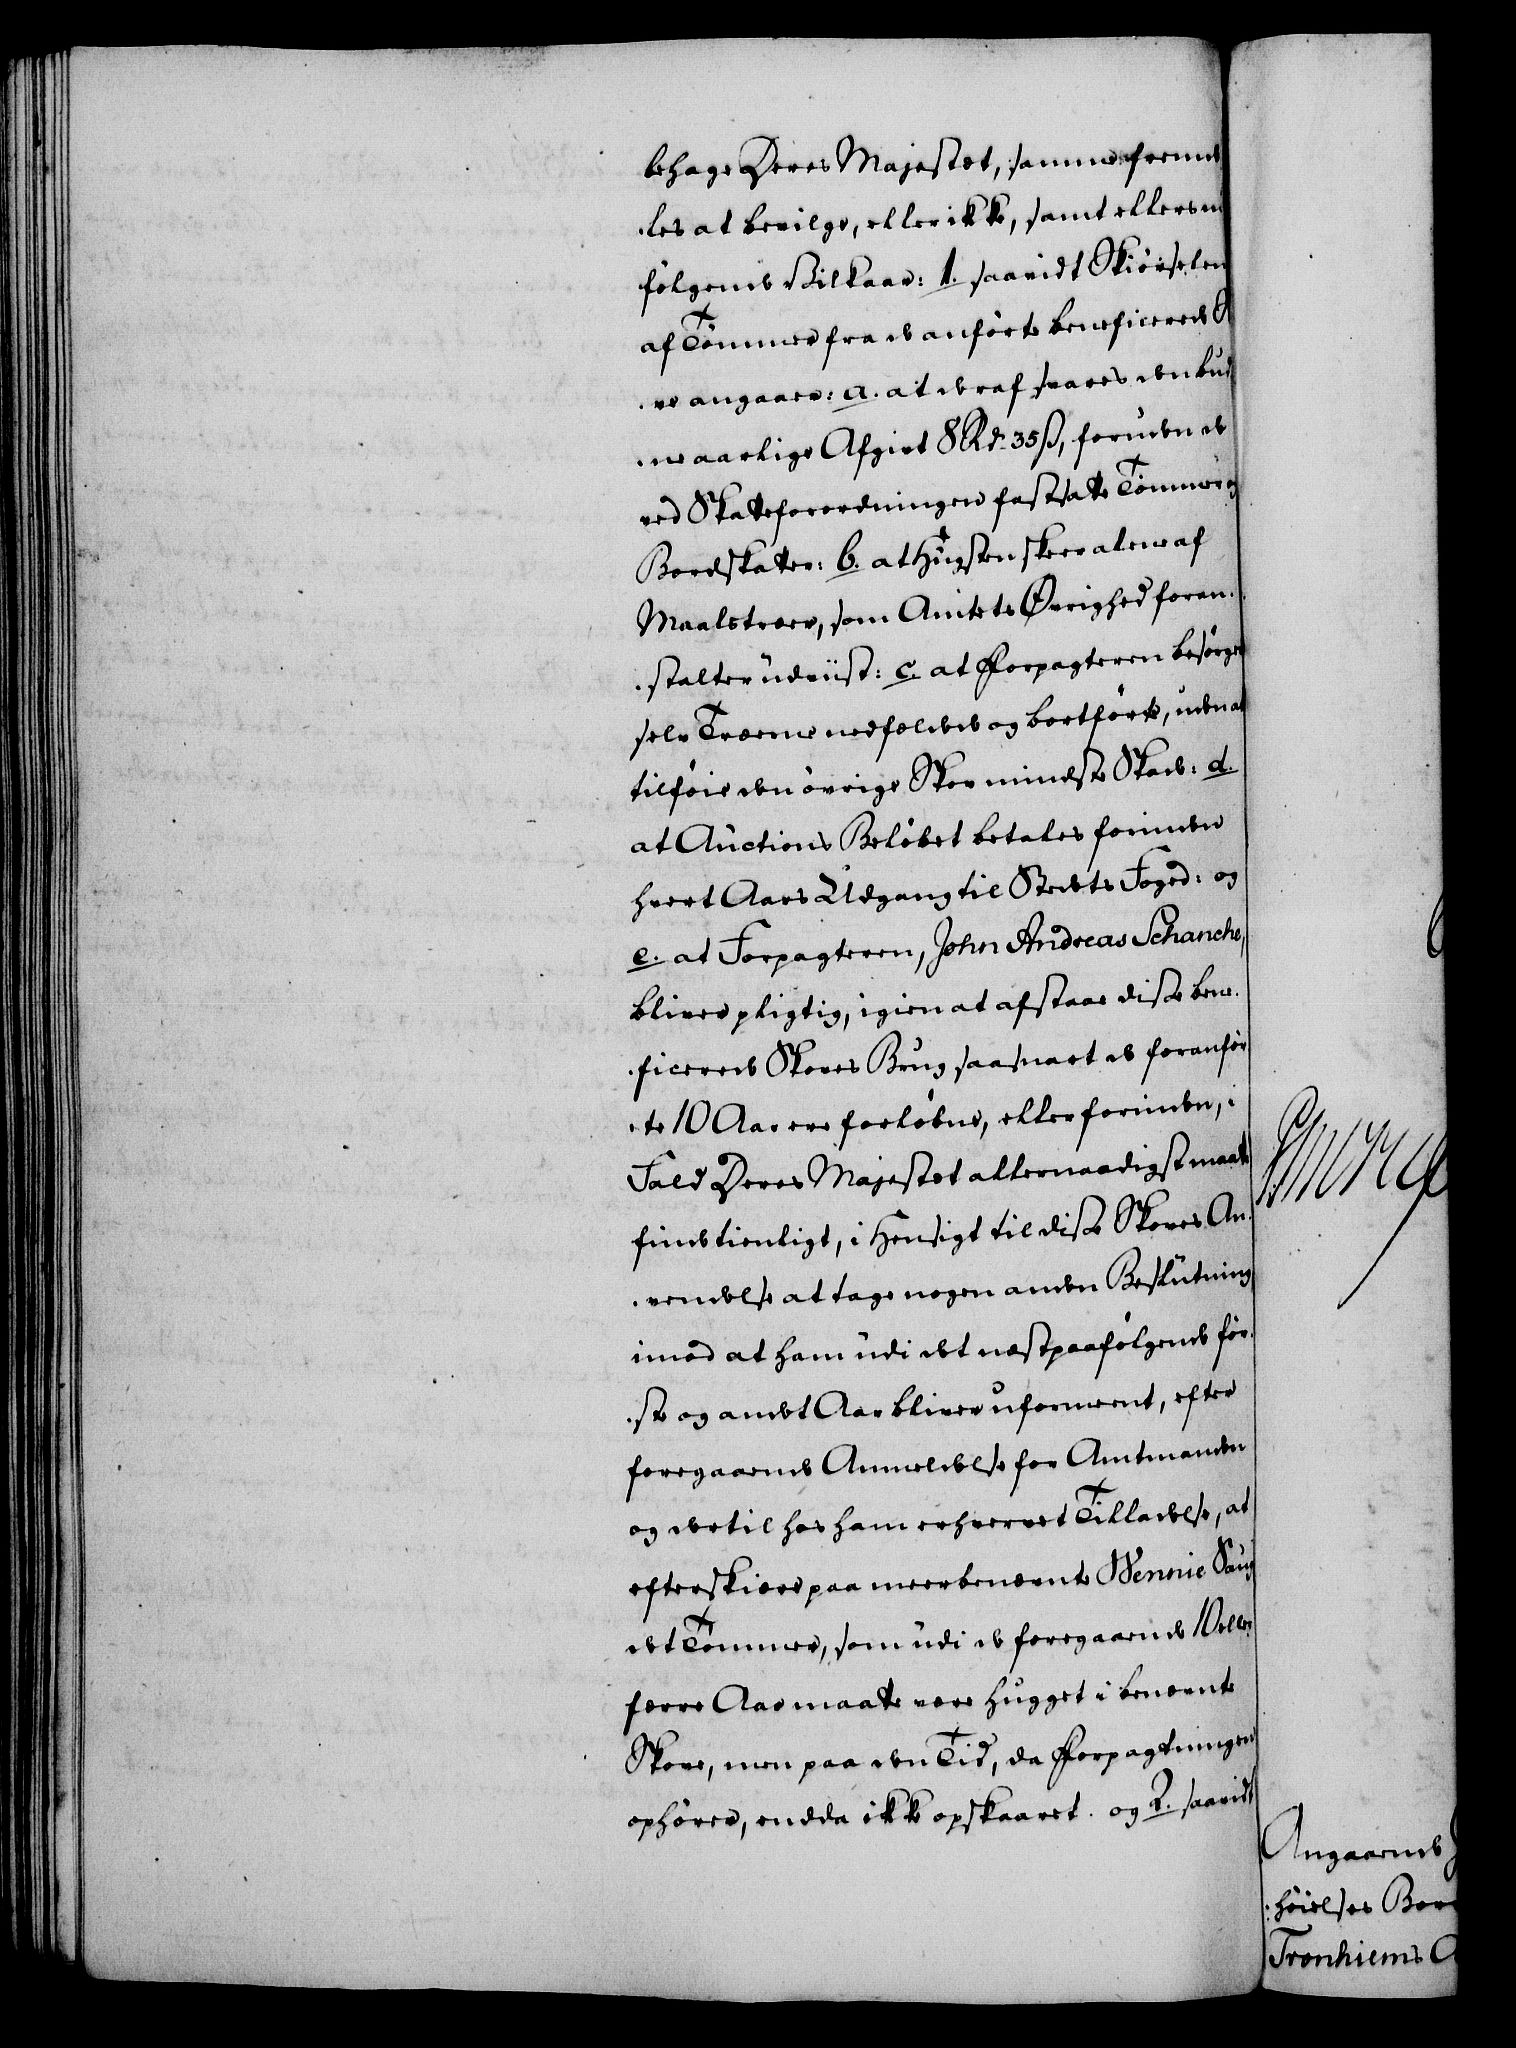 behage Deres Majestet, samme fremde
les at bevilge, eller ikke, samt ellers
følgende Vilkaar: 1. saavidt Skiørselen
af Tømmer fra de anførte beneficerede
ve angaaer: a. at deraf svares den bud
ne aarlige Afgivt 8 Rd. 35 ß, foruden de
ved Skatteforordningen fastsatte Tømmer og
Bordskatter: b. at Hugsten skeer alene af
Maalstræer, som Amtets Øvrighed foran-
stalter udviist: c. at Forpagteren besørger
selv Træerne nedfældede og bortførte, uden at
tilføie den øvrige Skov mindste Skade: d.
at Auctions Beløbet betales forinden
hvert Aars Udgang til Stedets Foged: og
e. at Forpagteren, John Andreas Schanche,
bliver pligtig, igien at afstaae disse bene-
ficerede Skoves Brug saasnart de foranfør
te 10 Aar ere forløbne, eller forinden, i
Fald Deres Majestet allernaadigst maatte
finde tienligt, i Hensigt til disse Skoves An-
vendelse at tage nogen anden Beslutning
imod at ham udi det næstpaafølgende før-
ste og andet Aar bliver uformeent, efter
foregaaende Anmeldelse for Amtmanden
og dertil hos ham erhvervet Tilladelse, at
efterskiære paa meerbenævnte Wennie Saug
det Tømmer, som udi de foregaaende 10 eller
færre Aar maatte være hugget i benævnte
Skove, men paa den Tid, da Forpagtningen
ophører, endda ikke opskaaret. og 2. saavidt
Angaaende
høielses
Tronhiems